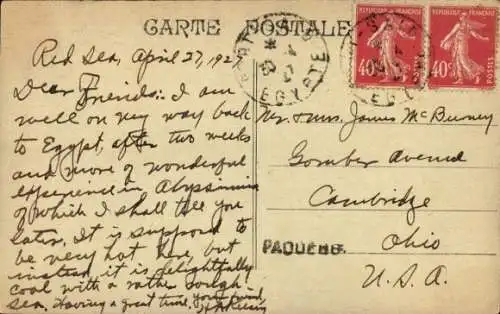 CARTE POSTALE
Red Sea, April 27, 192
Dear Friends: I am
well on my way back
to Egypt, after two weeks
and more of wonderful
experience in Abyssinia
of which I shall tell you
later. It is supposed to
be very hot here, but
instead it is delightfully
cool with a rather rough
sea. Having a great time, your friend,
Mr. & Mrs. James McBurney
Gomber Avenue
Cambridge
Ohio
U.S.A.
PAQUEBOT
PORT-SAID
EGYPTE
REPUBLIQUE FRANÇAISE
40c
POSTES
REPUBLIQUE FRANÇAISE
40c
POSTES